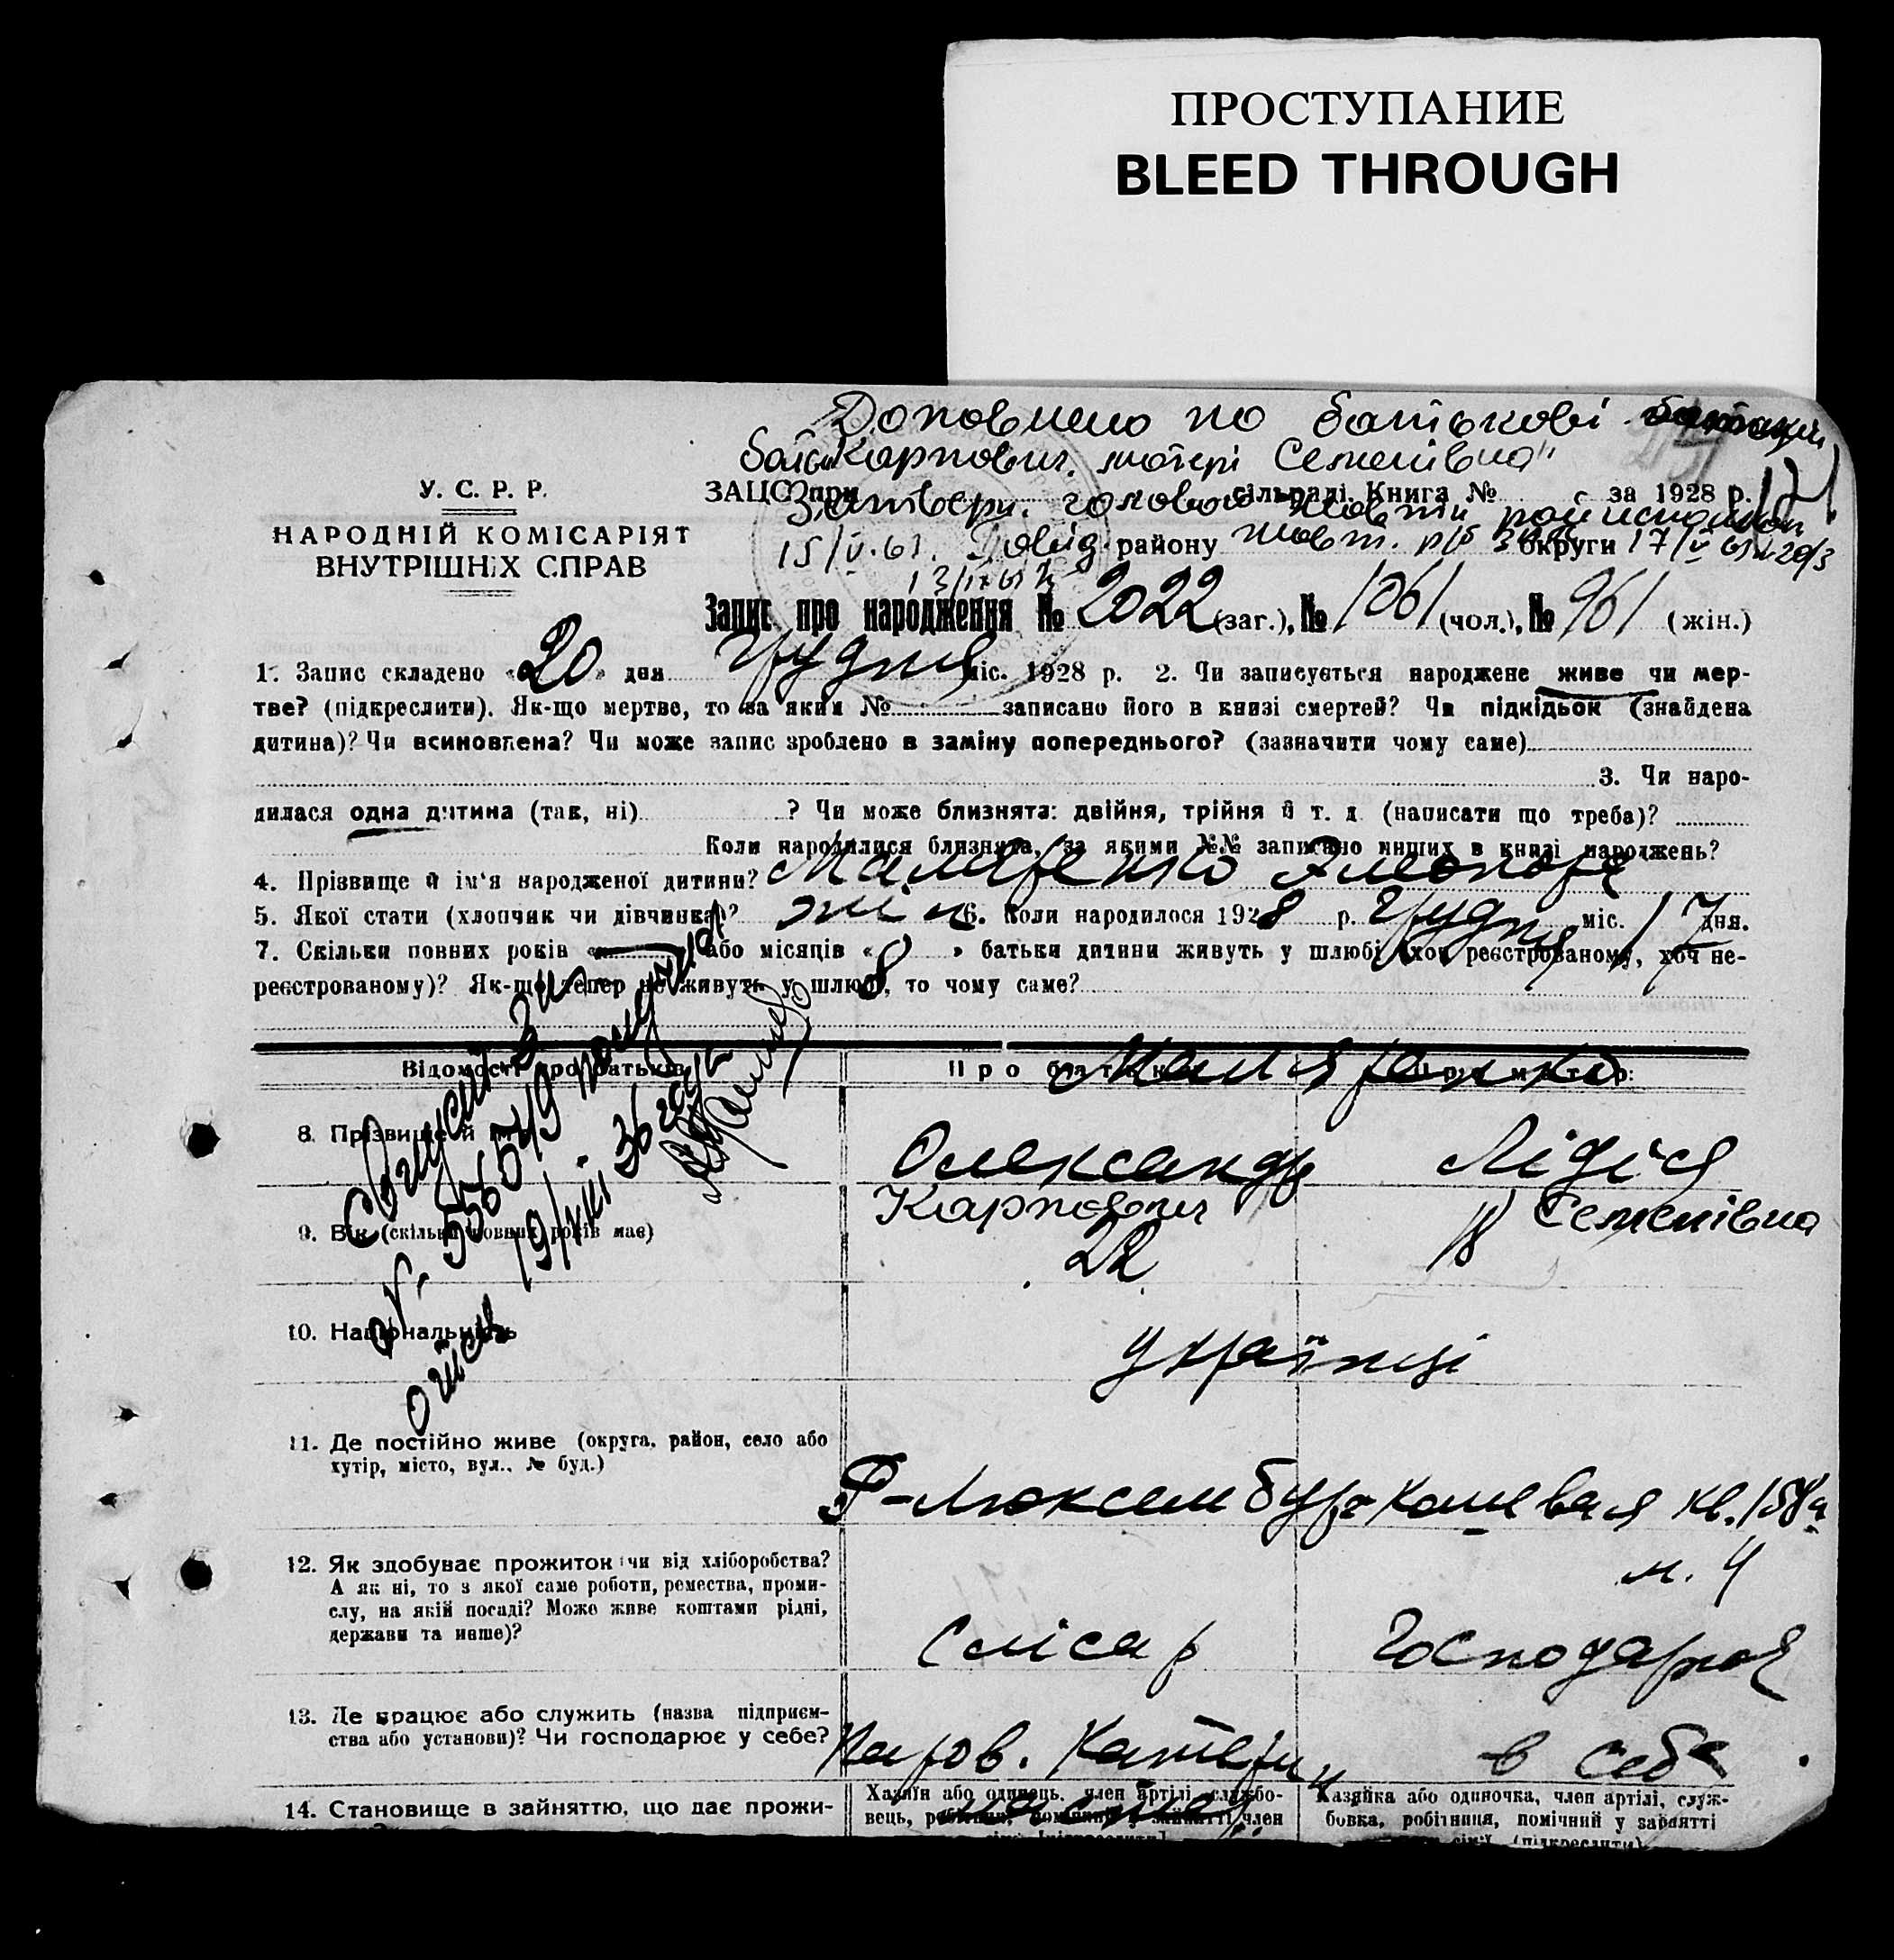 ПРОСТУПАНИЕ
BLEED THROUGH
Доповнено по батькові
Карпович, матері Семенівна"
У. С. Р. Р.
ЗАЦС при сільраді. Книга № за 1928 р.
Затверд. головою
НАРОДНІЙ КОМІСАРІЯТ
15/V.61. району округи 17/V
ВНУТРІШНІХ СПРАВ
Запис про народження № 2022 (заг.), № 1061 (чол.), № 961 (жін.)
1. Запис складено «20» дня Грудня міс. 1928 р. 2. Чи записується народжене живе чи мер-
тве? (підкреслити). Як-що мертве, то за яким № записано його в книзі смертей? Чи підкідьок (знайдена
дитина)? Чи всиновлена? Чи може запис зроблено в заміну попереднього? (зазначити чому саме)
3. Чи наро-
дилася одна дитина (так, ні) ? Чи може близнята: двійня, трійня й т. д. (написати що треба)?
Коли народилися близнята, за якими №№ записано инших в книзі народжень?
4. Прізвище й ім'я народженої дитини? Маляренко
5. Якої стати (хлопчик чи дівчинка)? жін 6. Коли народилося 1928 р. Грудня міс. 17 дня.
7. Скільки повних років « » або місяців «8» батьки дитини живуть у шлюбі (хоч реєстрованому, хоч не-
реєстрованому)? Як-що тепер не живуть у шлюбі, то чому саме?
Відомості про батьків Про батька: Про матір:
Маляренко
8. Прізвище й ім'я Олександр Лідія
Карпович Семенівна
9. Вік (скільки повних років має) 22 18
10. Національність Українці
11. Де постійно живе (округа, район, село або
хутір, місто, вул., № буд.)
Р-Люксембург кв. 158а
п. 4
12. Як здобуває прожиток: чи від хліборобства?
А як ні, то з якої саме роботи, ремества, проми-
слу, на якій посаді? Може живе коштами рідні,
держави та инше)?
Слісар Господарює
13. Де працює або служить (назва підприєм-
ства або установи)? Чи господарює у себе?
в себе
14. Становище в зайняттю, що дає прожи-
Хазяїн або одинець, член артілі, службо-
вець, робітник, помічний у зайнятті член
Хазяйка або одиночка, член артілі, служ-
бовка, робітниця, помічний у зайнятті
19/XII 36 года